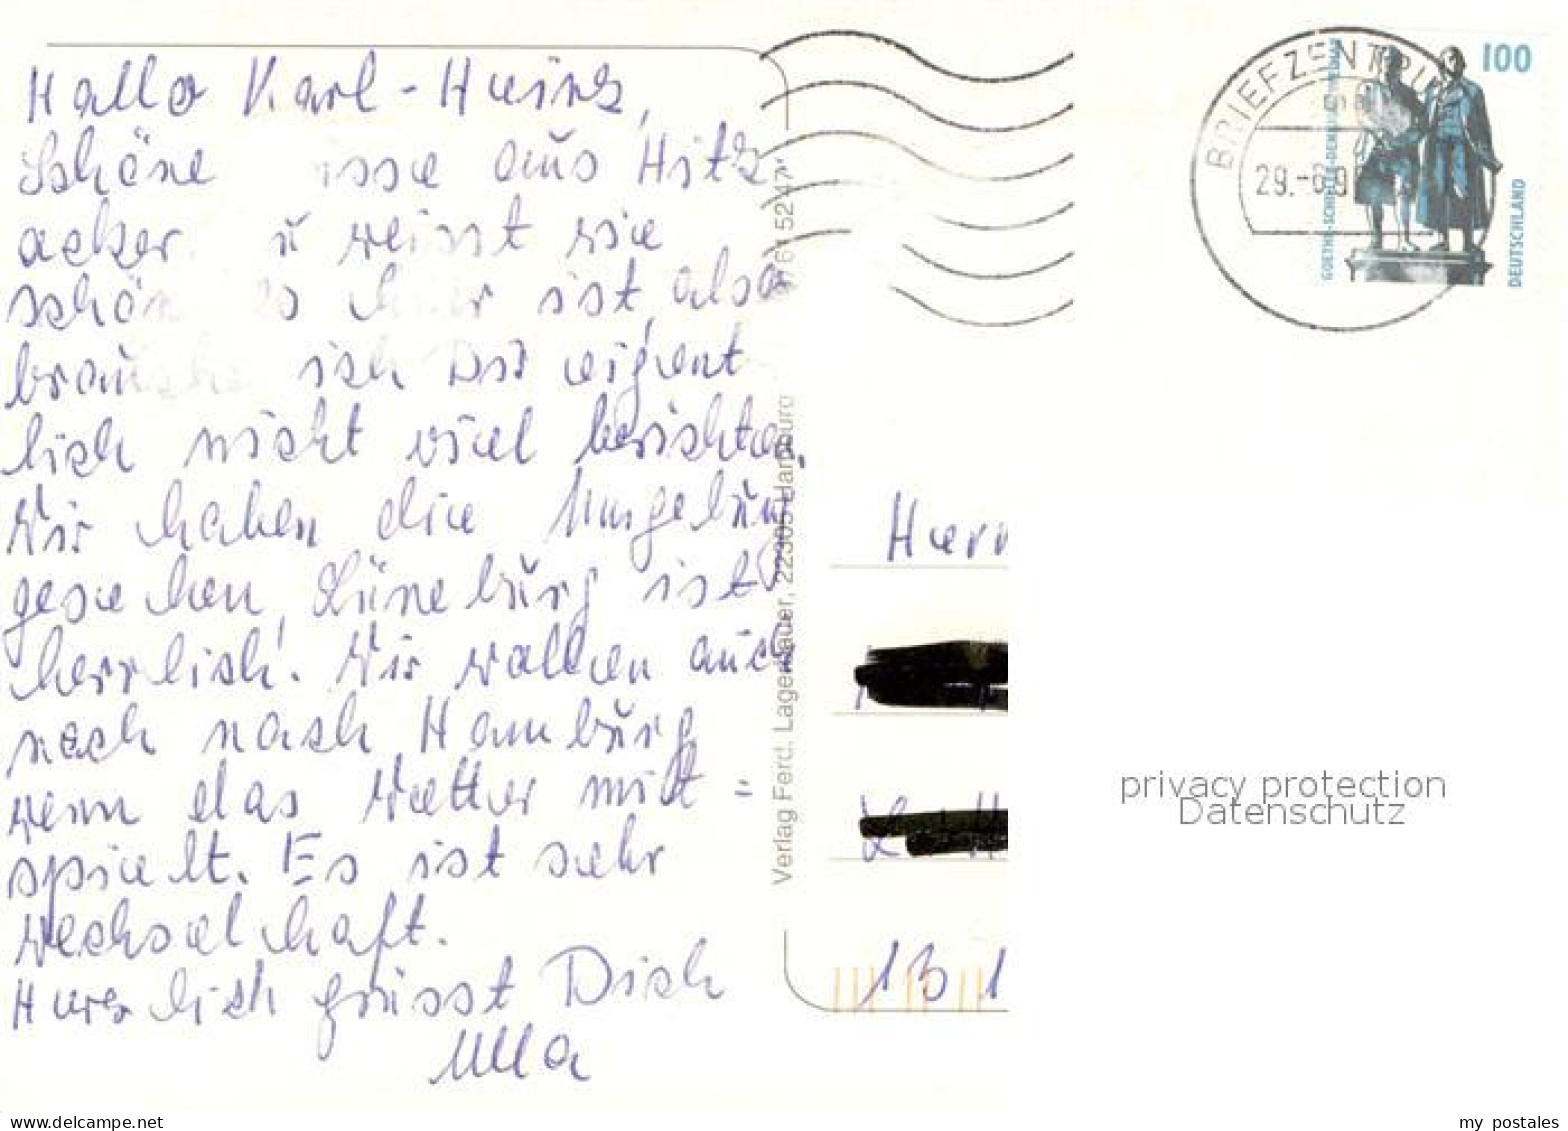 Hallo Karl-Heinz,
Schöne    sse aus Hitz
acker.   u weisst wie
schön  es hier ist, also
brauche ich Dir eigent
lich nicht viel berichten.
Wir haben die Umgebung
gesehen, Lüneburg ist
herrlich! Wir wollen auch
noch nach Hamburg
wenn das Wetter mit=
spielt. Es ist sehr
wechselhaft.
Herzlich grüsst Dich
Ulla
Verlag Ferd. Lagerbauer, 22305 Hamburg
52 47
BRIEFZENTRUM
29.-6.9
GOETHE-SCHILLER-DENKMAL WEIMAR
100
DEUTSCHLAND
Herr
131
privacy protection
Datenschutz
www.delcampe.net
my_postales